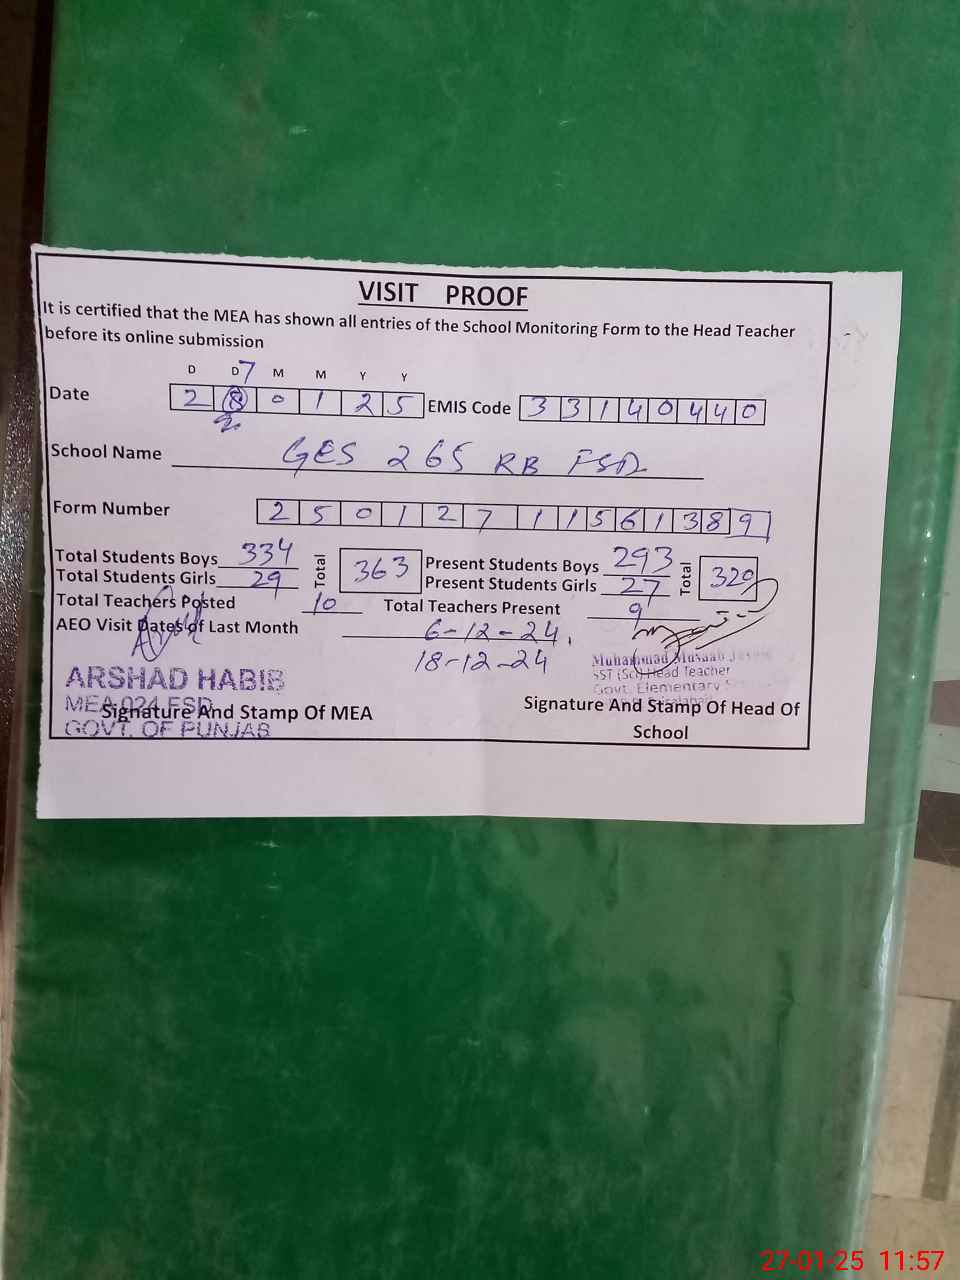 VISIT PROOF
It is certified that the MEA has shown all entries of the School Monitoring Form to the Head Teacher
before its online submission
D D 7 M M Y Y
Date 2 8 0 1 2 5 EMIS Code 3 3 1 4 0 4 4 0
School Name GES 265 RB FSD
Form Number 2 5 0 1 2 7 1 1 5 6 1 3 8 9
Total Students Boys 334 Total 363 Present Students Boys 293 Total 320
Total Students Girls 29 Present Students Girls 27
Total Teachers Posted 10 Total Teachers Present 9
AEO Visit Dates of Last Month 6-12-24,
18-12-24
ARSHAD HABIB
MEA 024 FSD
GOVT. OF PUNJAB
Signature And Stamp Of MEA
Muhammad Musaab
SST (Sci) Head Teacher
Govt. Elementary
Signature And Stamp Of Head Of
School
27-01-25 11:57